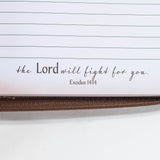 the Lord will fight for you.
Exodus 14:14